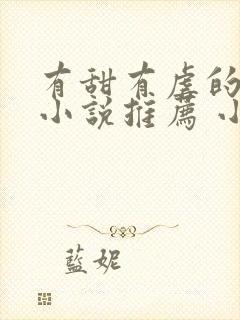 有甜有虐的
小說推薦 小
藍妮